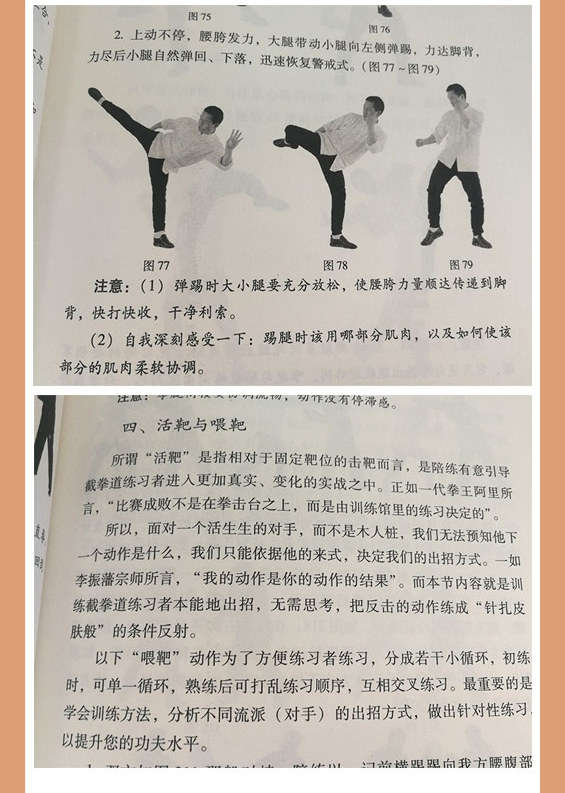 图75
图76
2. 上动不停，腰胯发力，大腿带动小腿向左侧弹踢，力达脚背，
力尽后小腿自然弹回、下落，迅速恢复警戒式。（图77～图79）
图77
图78
图79
注意：（1）弹踢时大小腿要充分放松，使腰胯力量顺达传递到脚
背，快打快收，干净利索。
（2）自我深刻感受一下：踢腿时该用哪部分肌肉，以及如何使该
部分的肌肉柔软协调。
动作没有停滞感。
四、活靶与喂靶
所谓“活靶”是指相对于固定靶位的击靶而言，是陪练有意引导
截拳道练习者进入更加真实、变化的实战之中。正如一代拳王阿里所
言，“比赛成败不是在拳击台之上，而是由训练馆里的练习决定的”。
所以，面对一个活生生的对手，而不是木人桩，我们无法预知他下
一个动作是什么，我们只能依据他的来式，决定我们的出招方式。一如
李振藩宗师所言，“我的动作是你的动作的结果”。而本节内容就是训
练截拳道练习者本能地出招，无需思考，把反击的动作练成“针扎皮
肤般”的条件反射。
以下“喂靶”动作为了方便练习者练习，分成若干小循环，初练
时，可单一循环，熟练后可打乱练习顺序，互相交叉练习。最重要的是
学会训练方法，分析不同流派（对手）的出招方式，做出针对性练习，
以提升您的功夫水平。